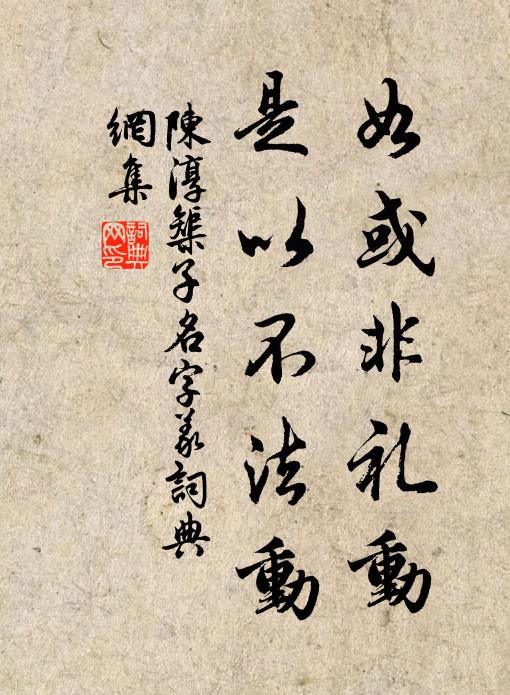 如或非礼動
是以不法動
陳淳築子名字義詞典
網集
詞典
网印